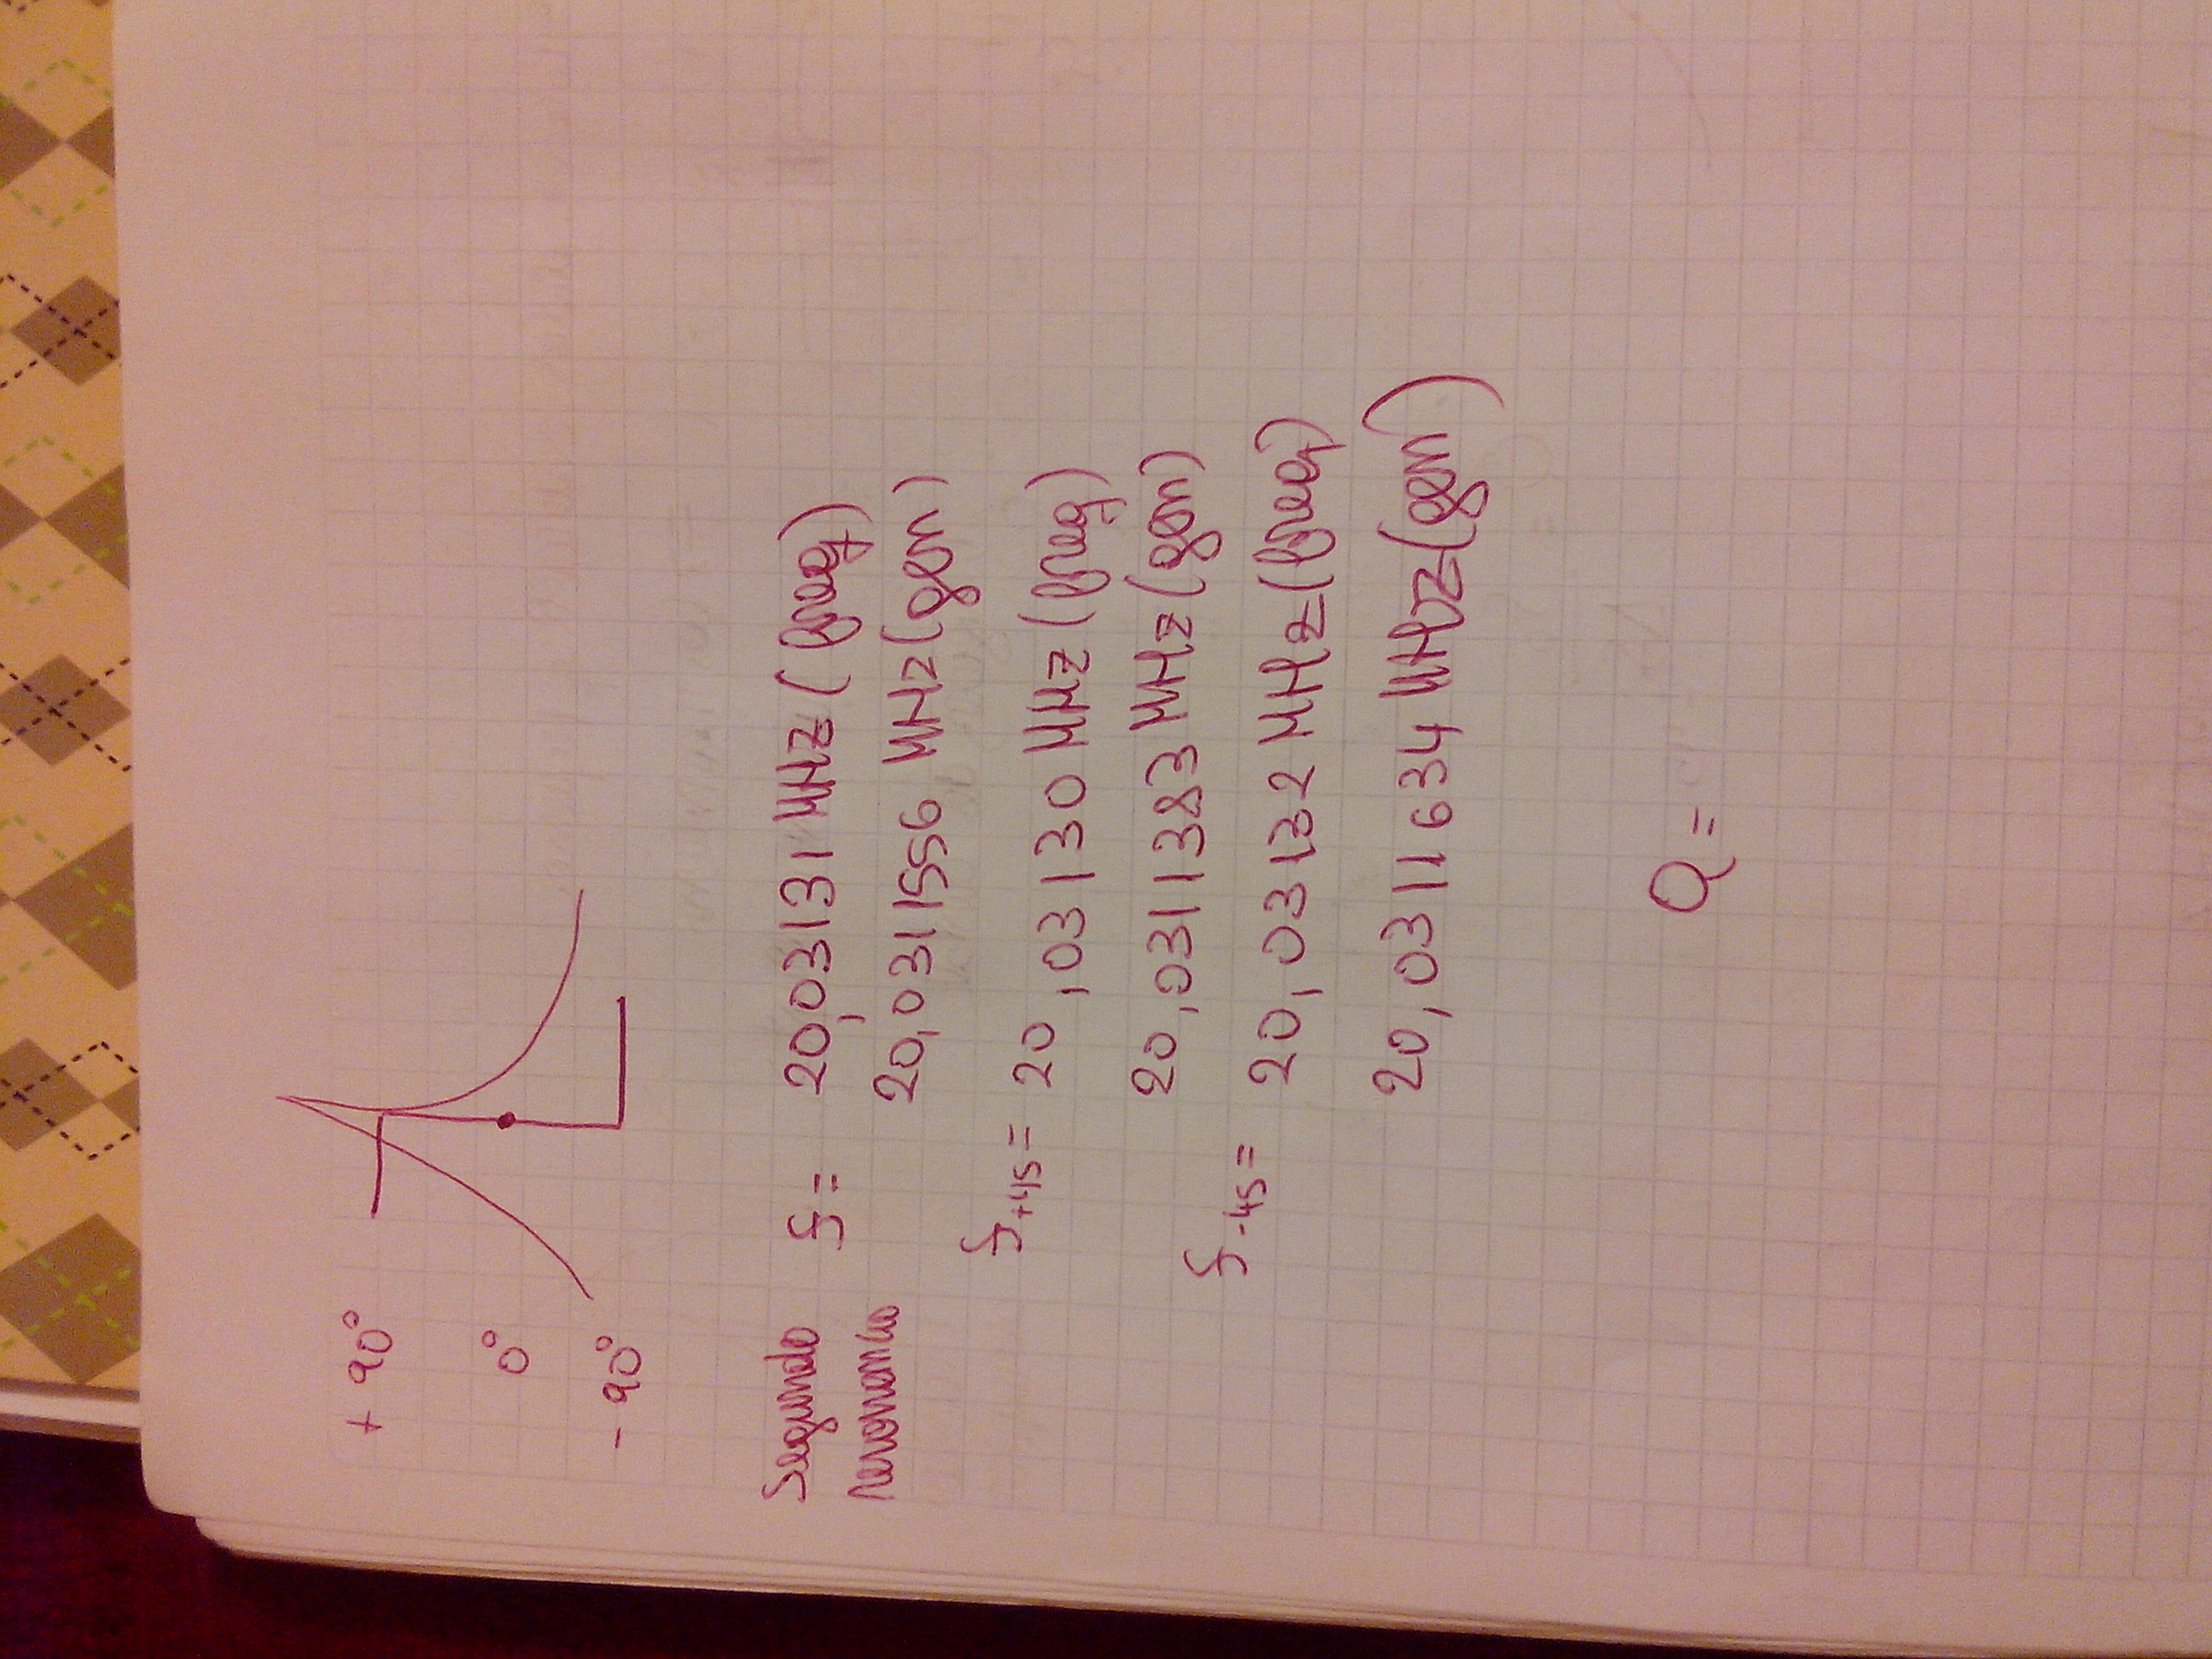 + 90°
0°
- 90°
Segundo
resonancia
f = 20,03131 MHz (freq)
20,0311556 MHz (gen)
f+45 = 20,03130 MHz (freq)
20,0311383 MHz (gen)
f-45 = 20,03132 MHz (freq)
20,0311634 MHz (gen)
Q =